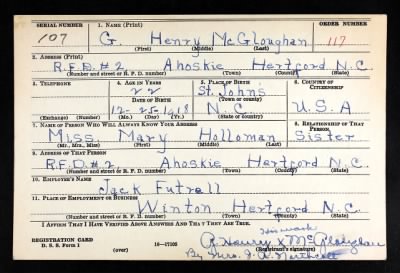 SERIAL NUMBER 1. NAME (Print) ORDER NUMBER
107 G. Henry McGloughan 117
(First) (Middle) (Last)
2. ADDRESS (Print)
R.F.D. #2 Ahoskie Hertford N.C.
(Number and street or R. F. D. number) (Town) (County) (State)
3. TELEPHONE 4. AGE IN YEARS 5. PLACE OF BIRTH 6. COUNTRY OF CITIZENSHIP
22 St. Johns
(Town or county)
DATE OF BIRTH
12-25-1918 N.C. U.S.A
(Exchange) (Number) (Mo.) (Day) (Yr.) (State or country)
7. NAME OF PERSON WHO WILL ALWAYS KNOW YOUR ADDRESS 8. RELATIONSHIP OF THAT PERSON
Miss. Mary Holloman Sister
(Mr., Mrs., Miss) (First) (Middle) (Last)
9. ADDRESS OF THAT PERSON
R.F.D. #2 Ahoskie Hertford N.C.
(Number and street or R. F. D. number) (Town) (County) (State)
10. EMPLOYER'S NAME
Jack Futrell
11. PLACE OF EMPLOYMENT OR BUSINESS
Winton Hertford N.C.
(Number and street or R. F. D. number) (Town) (County) (State)
I AFFIRM THAT I HAVE VERIFIED ABOVE ANSWERS AND THAT THEY ARE TRUE.
his mark
Henry x McGloughan
REGISTRATION CARD
D. S. S. Form 1 (over) 16—17105 (Registrant's signature)
By Mrs. J. A. Northcott